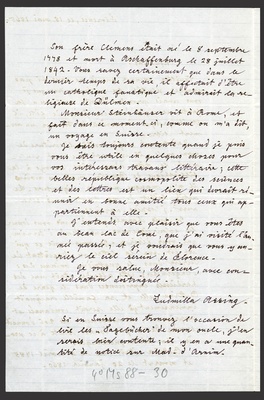 Son frère Clémens était né le 8 septembre
1778 et mort à Aschaffenburg le 28 juillet
1842. Vous savez certainement que dans le
dernier temps de sa vie, il affectait d'être
un catholique fanatique et admirait la re-
ligieuse de Dülmen.
Monsieur Steinhäuser vit à Rome, et
fait dans ce moment ci, comme on m'a dit,
un voyage en Suisse.
Je suis toujours contente quand je puis
vous être utile en quelques choses pour
vos intéressans travaux littéraires; cette
belle république cosmopolite des sciences
et des lettres est un lien qui devrait ré-
unir en bonne amitié tous ceux qui ap-
partiennent à elle.
J'entends avec plaisir que vous êtes
au beau lac de Come, que j'ai visité l'an-
née passée; et je voudrais que vous y au-
riez le ciel serein de Florence.
Je vous salue, Monsieur, avec con-
sidération distinguée.
Ludmilla Assing.
Si en Suisse vous trouvez l'occasion de
lire les "Tagebücher" de mon oncle, j'en
serais bien contente; il y en a une quan-
tité de notice sur Mad. d'Arnim.
4° Ms 88 - 30